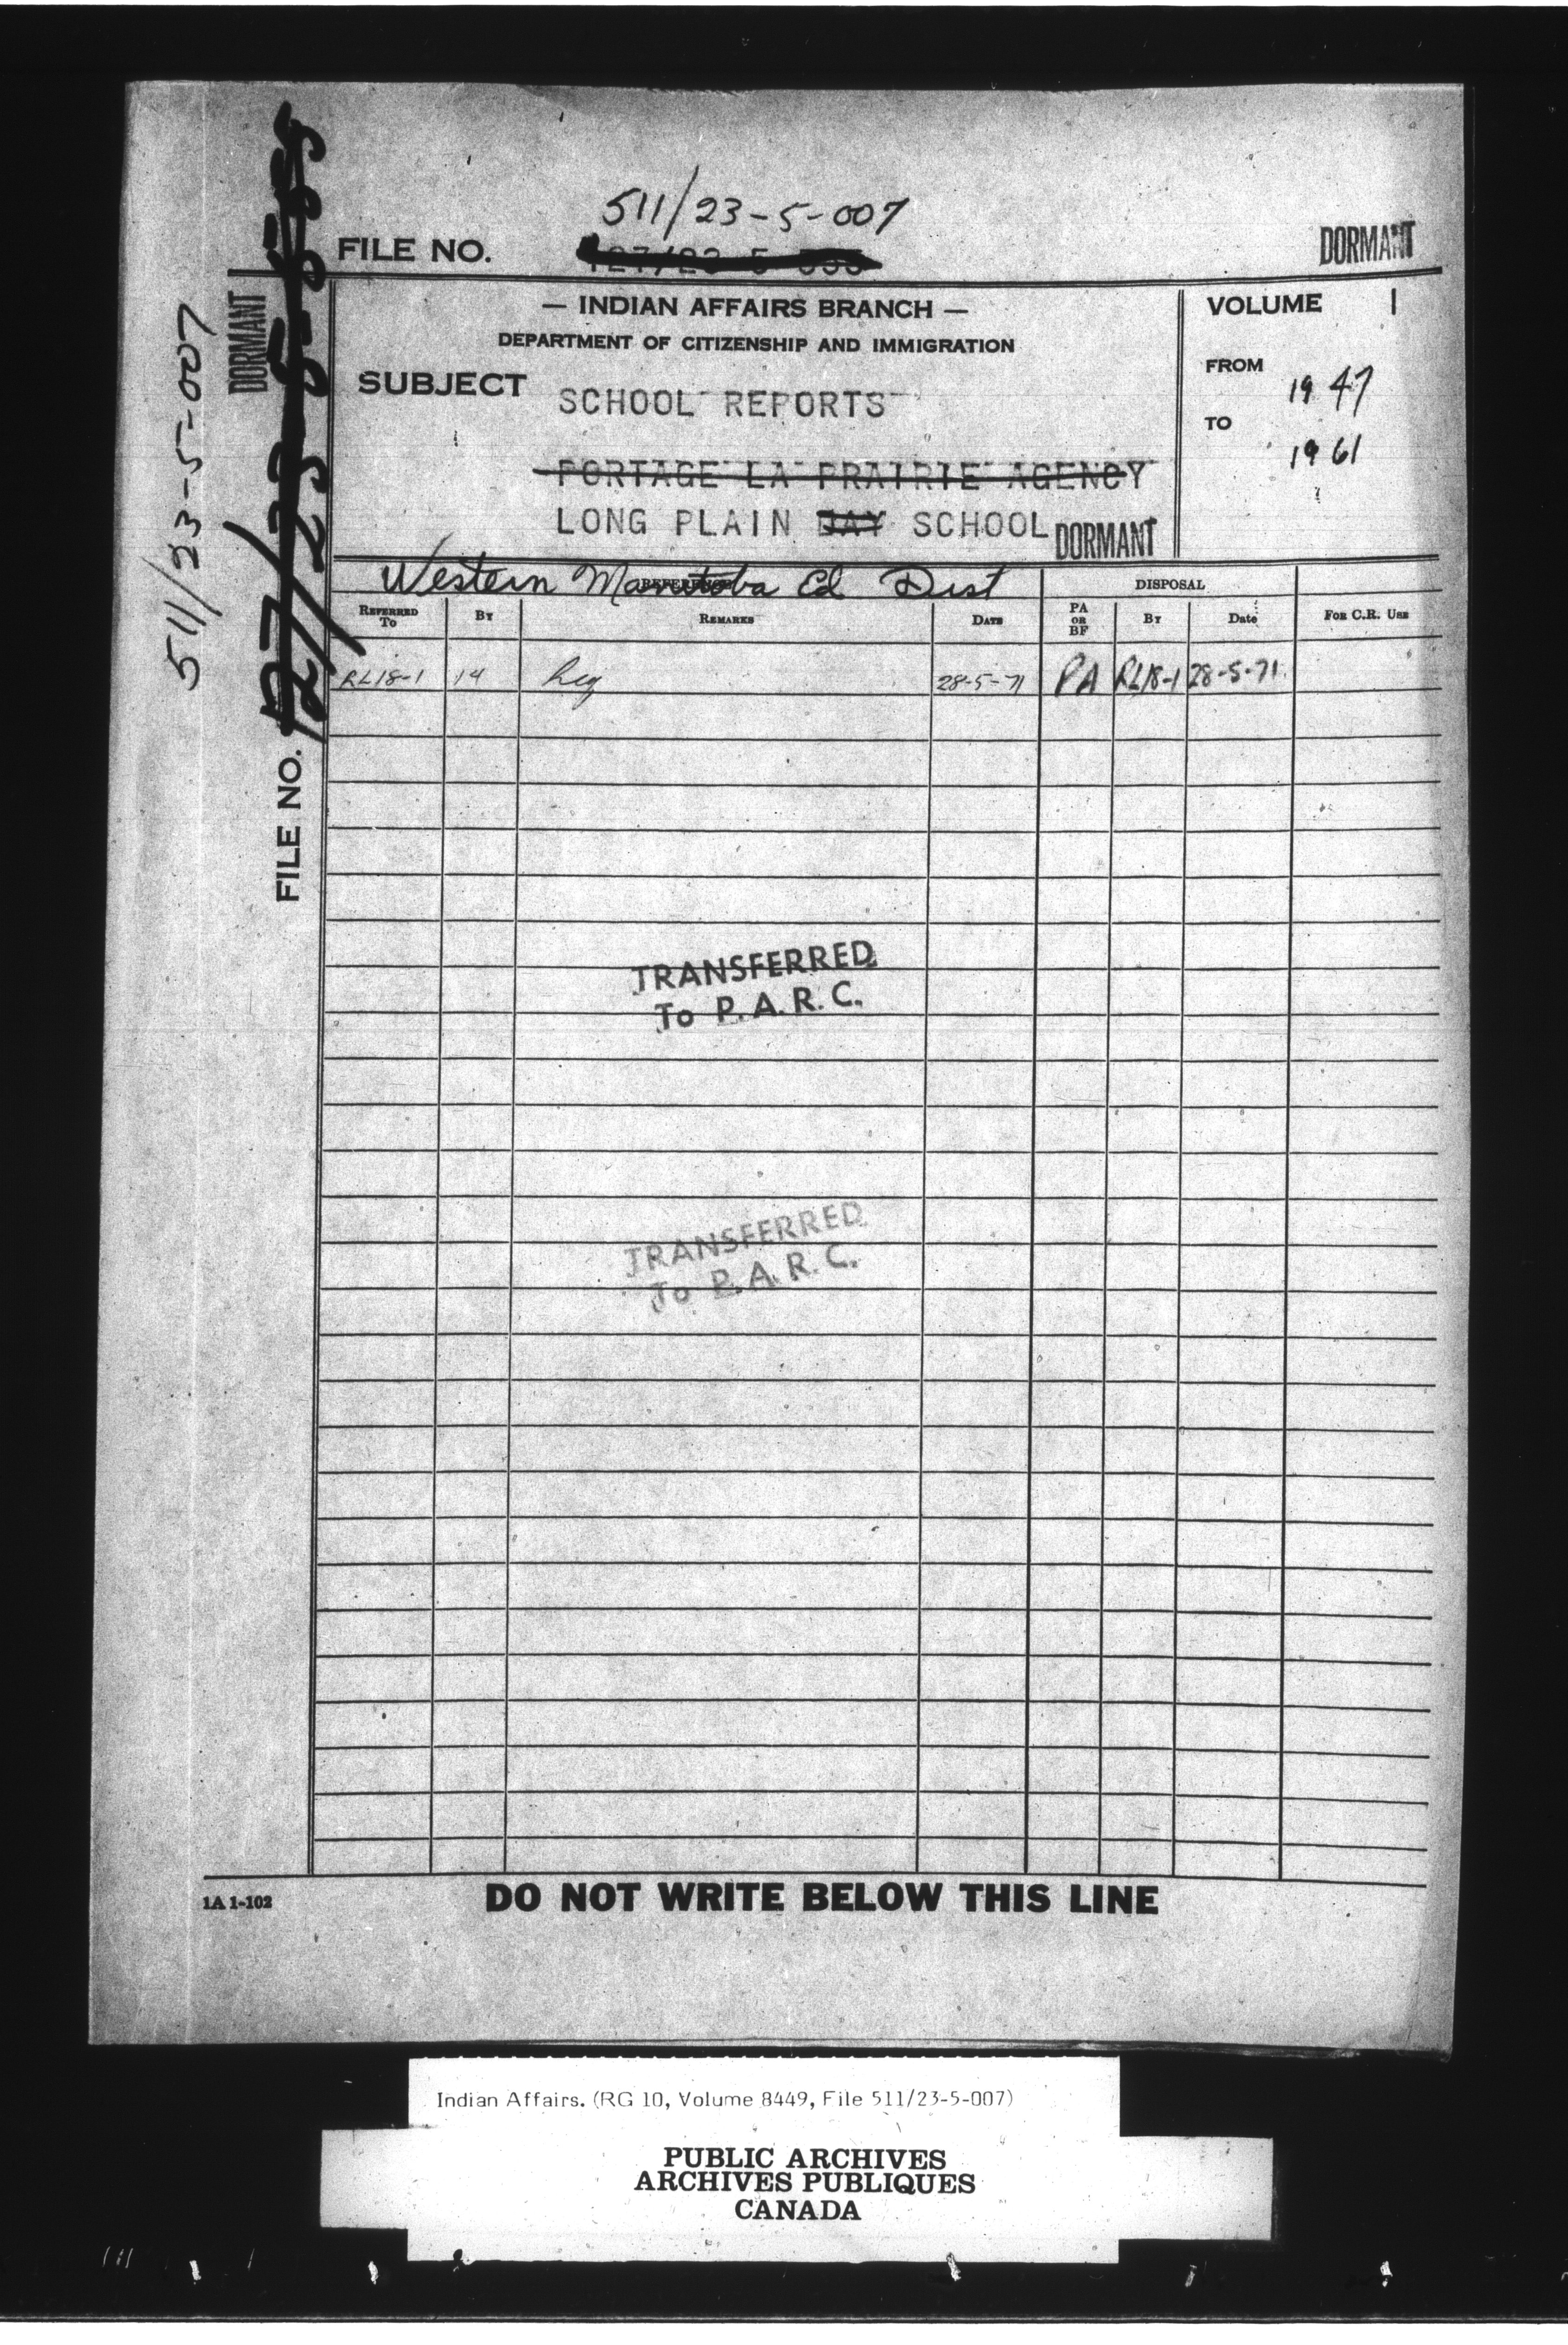 511/23-5-007
FILE NO.
DORMANT
— INDIAN AFFAIRS BRANCH —
DEPARTMENT OF CITIZENSHIP AND IMMIGRATION
SUBJECT
SCHOOL REPORTS
PORTAGE LA PRAIRIE AGENCY
LONG PLAIN DAY SCHOOL DORMANT
VOLUME 1
FROM
1947
TO
1961
Western Manitoba Ed. Dist
REFERENCE
DISPOSAL
REFERRED TO
BY
REMARKS
DATE
PA OR BF
BY
Date
FOR C.R. USE
RL18-1 14 28-5-71 PA RL18-1 28-5-71
TRANSFERRED
To P.A.R.C.
TRANSFERRED
To P.A.R.C.
511/23-5-007
DORMANT
FILE NO.
1A 1-102
DO NOT WRITE BELOW THIS LINE
Indian Affairs. (RG 10, Volume 8449, File 511/23-5-007)
PUBLIC ARCHIVES
ARCHIVES PUBLIQUES
CANADA